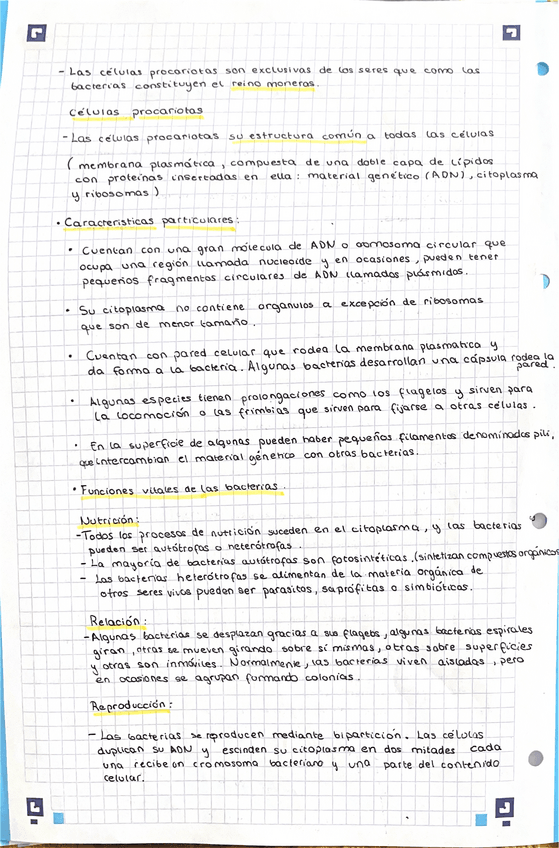 - Las células procariotas son exclusivas de los seres que como las
bacterias constituyen el reino moneras.
Células procariotas
- Las células procariotas su estructura común a todas las células
(membrana plasmática, compuesta de una doble capa de lípidos
con proteínas insertadas en ella: material genético (ADN), citoplasma
y ribosomas)
• Características particulares:
• Cuentan con una gran molecula de ADN o oomosoma circular que
ocupa una región llamada nucleoide y en ocasiones, pueden tener
pequeños fragmentos circulares de ADN llamados plásmidos.
• Su citoplasma no contiene organulos a excepción de ribosomas
que son de menor tamaño.
• Cuentan con pared celular que rodea la membrana plasmatica y
da forma a la bacteria. Algunas bacterias desarrollan una cápsula rodea la
pared.
• Algunas especies tienen prolongaciones como los flagelos y sirven para
la locomoción o las frimbias que sirven para fijarse a otras células.
• En la superficie de algunas pueden haber pequeños filamentos denominados pili,
que intercambian el material génetico con otras bacterias.
• Funciones vitales de las bacterias.
Nutrición:
- Todos los procesos de nutrición suceden en el citoplasma, y las bacterias
pueden ser autótrofas o heterótrofas.
- La mayoría de bacterias autótrofas son fotosintéticas. (sintetizan compuestos orgánicos
- Las bacterias heterótrofas se alimentan de la materia orgánica de
otros seres vivos pueden ser parasitos, saprófitas o simbióticas.
Relación:
- Algunas bacterias se desplazan gracias a sus flagelos, algunas bacterias espirales
giran, otras se mueven girando sobre sí mismas, otras sobre superficies
y otras son inmóviles. Normalmente, las bacterias viven aisladas, pero
en ocasiones se agrupan formando colonias.
Reproducción:
- Las bacterias se reproducen mediante bipartición. Las células
duplican su ADN y escinden su citoplasma en dos mitades cada
una recibe on cromosoma bacteriano y una parte del contenido
celular.